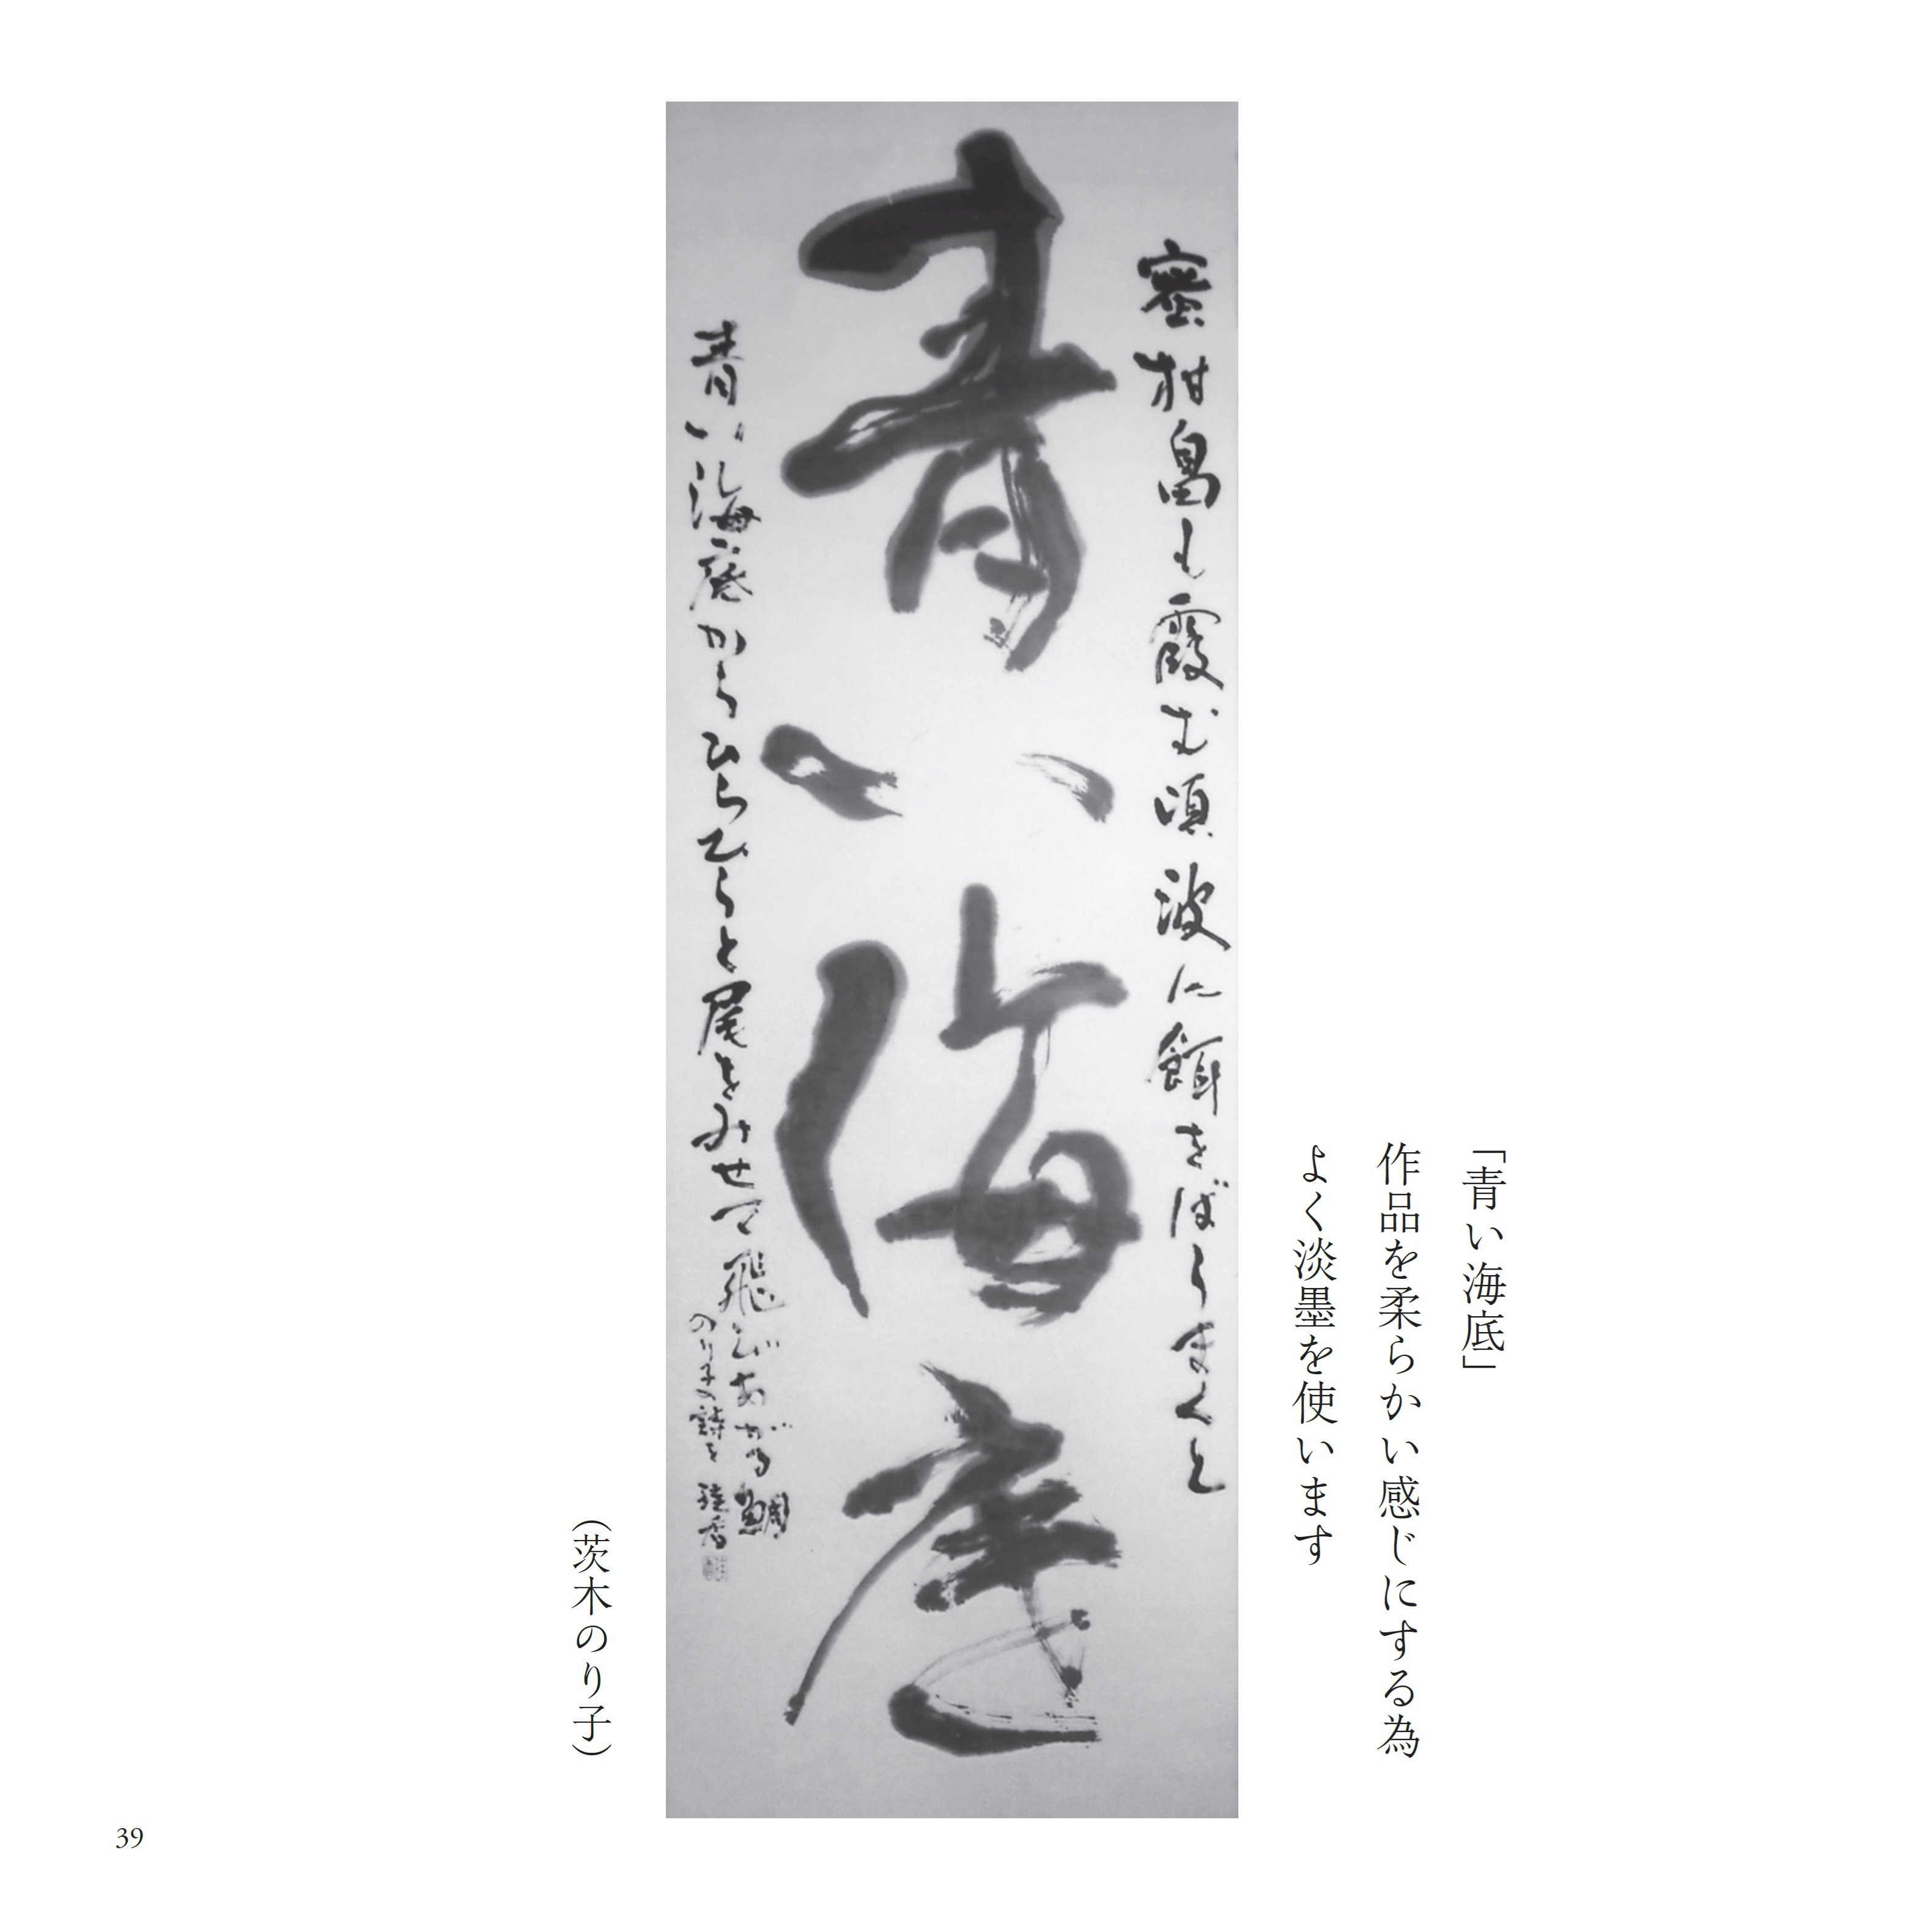 「青い海底」
作品を柔らかい感じにする為
よく淡墨を使います
蜜柑畠も霞む頃波に餌をばらまくと
青い海底
青い海底からひらひらと尾をみせて飛びあがる鯛
のり子の詩を
(茨木のり子)
39